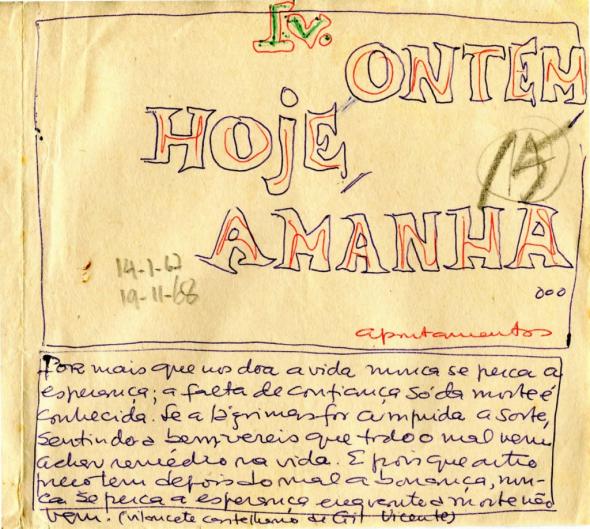 IV.
ONTEM
HOJE
AMANHA
...
15
14-1-67
19-11-68
apontamentos
Por mais que nos doa a vida nunca se perca a
esperança; a falta de confiança só da morte é
conhecida. Se a lágrimas for cumprida a sorte,
sentindo-a bem vereis que todo o mal vem
achar remédio na vida. E pois que outro
preço tem depois do mal a bonança, nun-
ca se perca a esperança enquanto a morte não
vem. (vilancete castelhano de Gil Vicente)